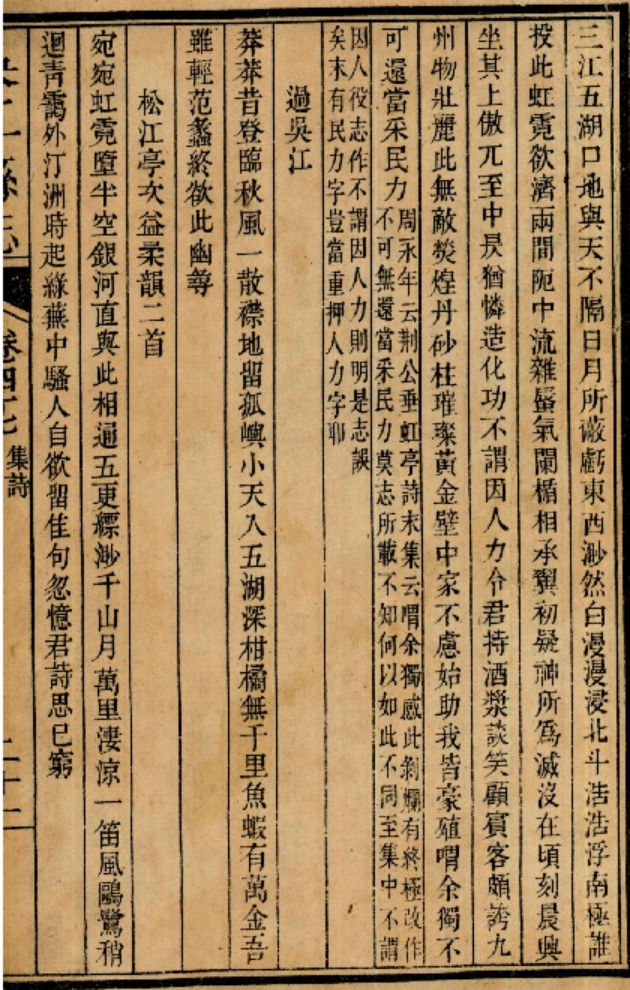 三江五湖口地與天不隔日月所蔽虧東西渺然白漫漫浸北斗浩浩浮南極誰
投此虹霓欲濟兩間阨中流雜蜃氣闌楯相承翼初疑神所爲滅沒在頃刻晨興
坐其上傲兀至中昃猶憐造化功不謂因人力令君持酒漿談笑顧賓客頗誇九
州物壯麗此無敵熒煌丹砂柱璀璨黃金壁中家不慮始助我皆豪殖喟余獨不
可還當采民力
周永年云荆公垂虹亭詩末集云喟余獨感此剝爛有終極改作
不可無還當采民力莫志所載不知何以如此不同至集中不謂
因人役志作不謂因人力則明是志誤
矣末有民力字豈當重押人力字耶
過吳江
莽莽昔登臨秋風一散襟地留孤嶼小天入五湖深柑橘無千里魚蝦有萬金吾
雖輕范蠡終欲此幽尋
松江亭次益柔韻二首
宛宛虹霓墮半空銀河直與此相通五更縹渺千山月萬里淒涼一笛風鷗鷺稍
迴青靄外汀洲時起綠蕪中騷人自欲留佳句忽憶君詩思已窮
卷四十七
集詩
二十一